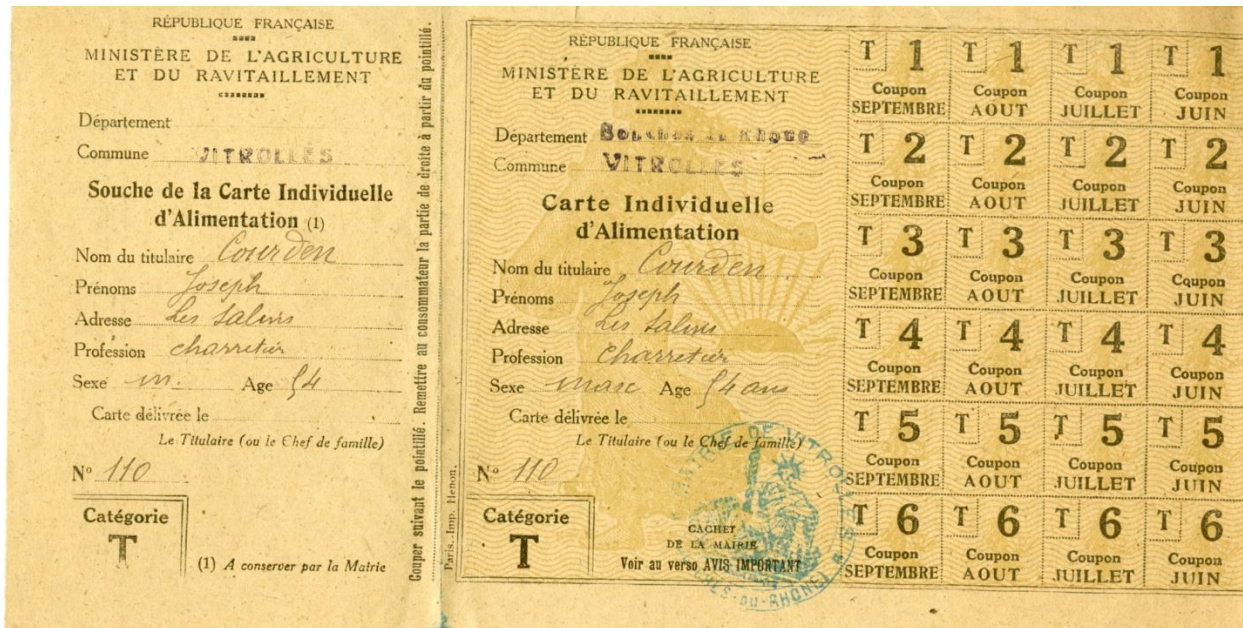 RÉPUBLIQUE FRANÇAISE
MINISTÈRE DE L'AGRICULTURE
ET DU RAVITAILLEMENT
Département
Commune VITROLLES
Souche de la Carte Individuelle
d'Alimentation (1)
Nom du titulaire Courden
Prénoms Joseph
Adresse Les Salins
Profession charretier
Sexe m. Age 54
Carte délivrée le
Le Titulaire (ou le Chef de famille)
Nº 110
Catégorie
T
(1) A conserver par la Mairie
Couper suivant le pointillé. Remettre au consommateur la partie de droite à partir du pointillé.
Paris. Imp. Henon.
RÉPUBLIQUE FRANÇAISE
MINISTÈRE DE L'AGRICULTURE
ET DU RAVITAILLEMENT
Département Bouches du Rhone
Commune VITROLLES
Carte Individuelle
d'Alimentation
Nom du titulaire Courden
Prénoms Joseph
Adresse Les Salins
Profession Charretier
Sexe masc Age 54 ans
Carte délivrée le
Le Titulaire (ou le Chef de famille)
Nº 110
Catégorie
T
CACHET
DE LA MAIRIE
Voir au verso AVIS IMPORTANT
MAIRIE DE VITROLLES
BOUCHES-DU-RHONE
T 1 T 1 T 1 T 1
Coupon Coupon Coupon Coupon
SEPTEMBRE AOUT JUILLET JUIN
T 2 T 2 T 2 T 2
Coupon Coupon Coupon Coupon
SEPTEMBRE AOUT JUILLET JUIN
T 3 T 3 T 3 T 3
Coupon Coupon Coupon Coupon
SEPTEMBRE AOUT JUILLET JUIN
T 4 T 4 T 4 T 4
Coupon Coupon Coupon Coupon
SEPTEMBRE AOUT JUILLET JUIN
T 5 T 5 T 5 T 5
Coupon Coupon Coupon Coupon
SEPTEMBRE AOUT JUILLET JUIN
T 6 T 6 T 6 T 6
Coupon Coupon Coupon Coupon
SEPTEMBRE AOUT JUILLET JUIN